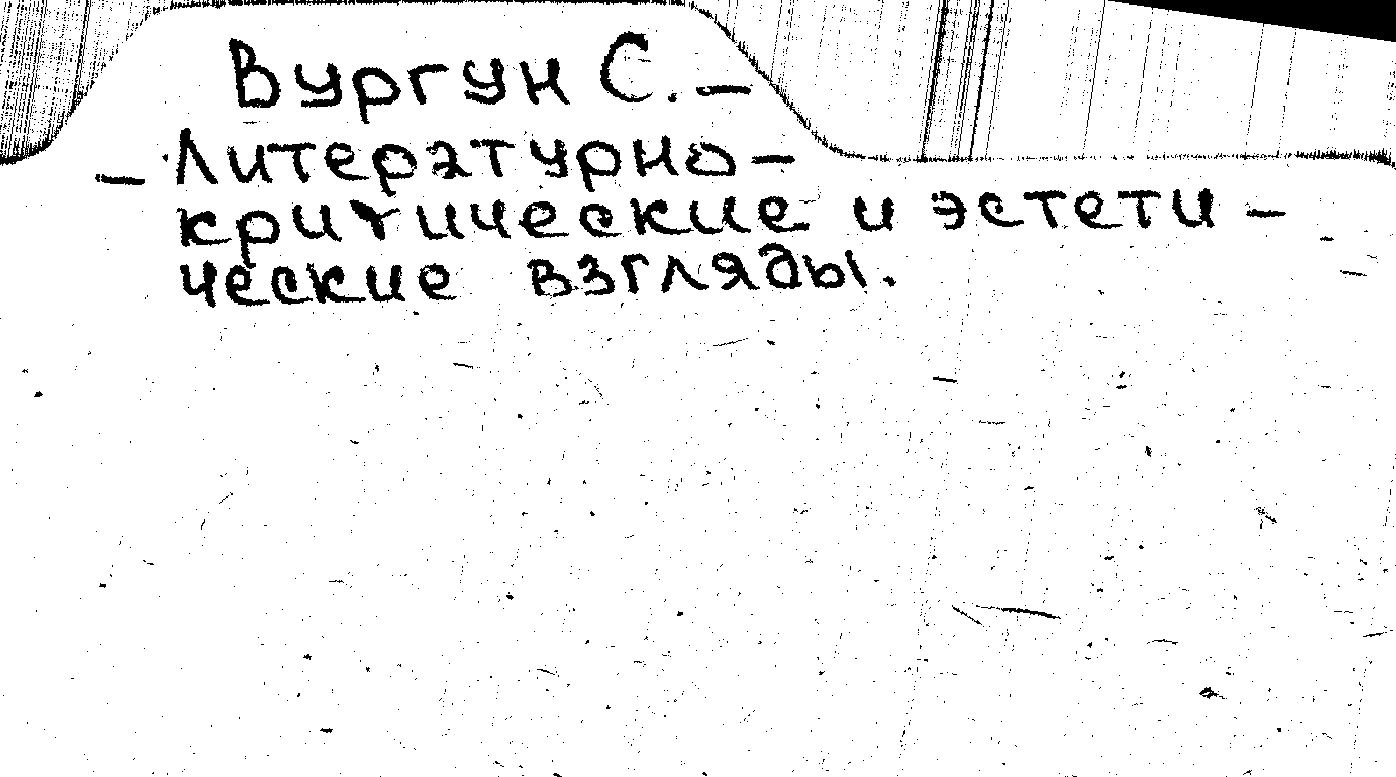 Вургун С. —
— Литературно —
критические и эстети —
ческие взгляды.